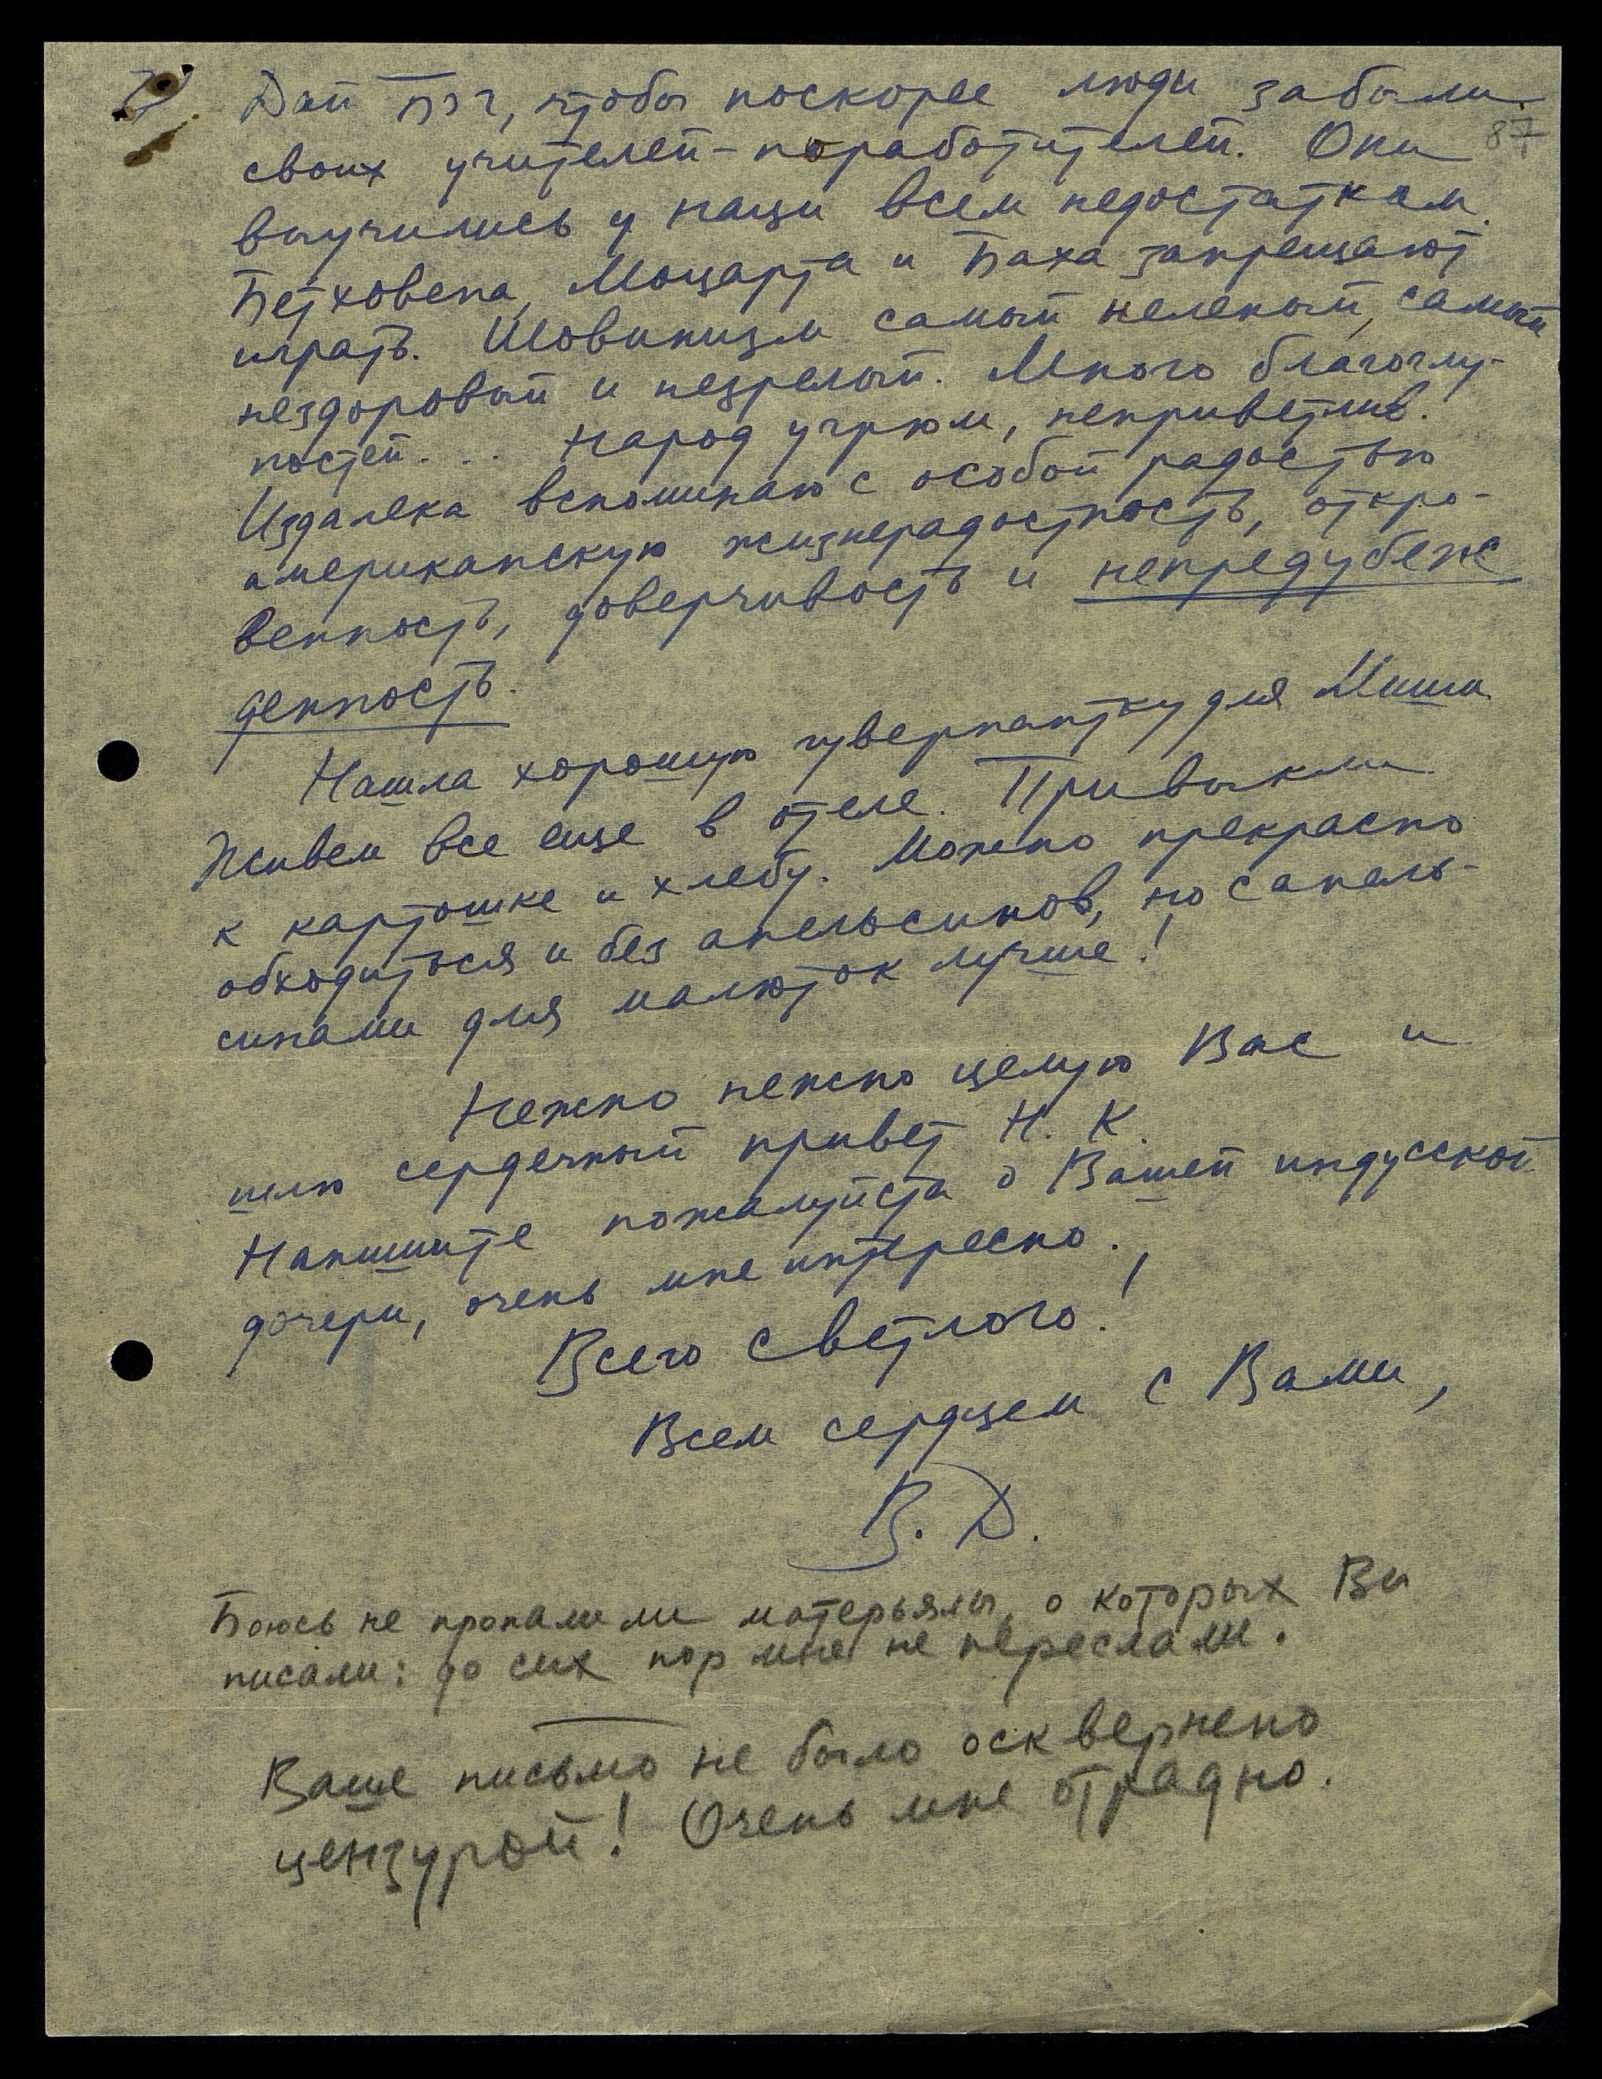 7) Дай Бог, чтобы поскорее люди забыли
87
своих учителей-поработителей. Они
выучились у наци всем недостаткам.
Бетховена, Моцарта и Баха запрещают
играть. Шовинизм самый нелепый, самый
нездоровый и незрелый. Много благоглу-
постей... Народ угрюм, неприветлив.
Издалека вспоминаю с особой радостью
американскую жизнерадостность, откро-
венность, доверчивость и непредубеж
денность.
Нашла хорошую гувернантку для Миши
Живем все еще в отеле. Привыкли
к картошке и хлебу. Можно прекрасно
обходиться и без апельсинов, но с апель-
синами для малюток лучше!
Нежно нежно целую Вас и
шлю сердечный привет Н. К.
Напишите пожалуйста о Вашей индусской
дочери, очень мне интересно.
Всего светлого!
Всем сердцем с Вами,
В. Д.
Боюсь не пропали ли матерьялы, о которых Вы
писали: до сих пор мне не переслали.
Ваше письмо не было осквернено
цензурой! Очень мне отрадно.